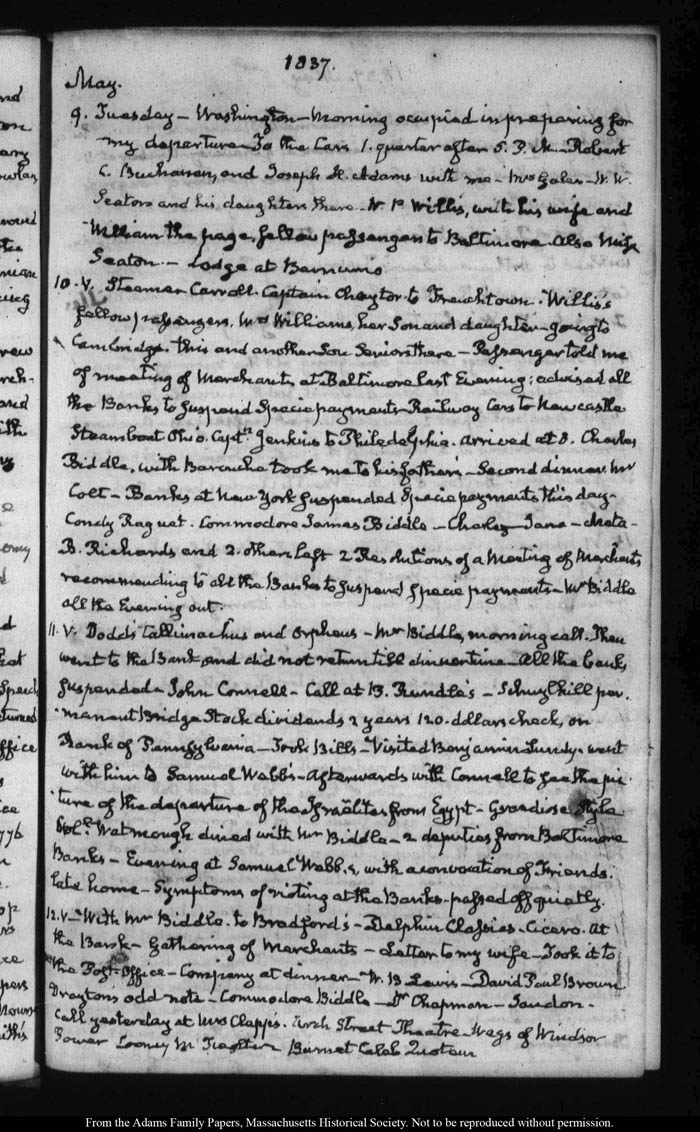 1837.
May.
9. Tuesday – Washington – Morning occupied in preparing for
my departure – To the Cars 1. quarter after 5. P. M. – Robert
C. Buchanan, and Joseph H. Adams with me – Mrs Gales – W. W
Seaton and his daughters there – N. P. Willis, with his wife and
William the page, fellow passengers to Baltimore. Also Miss
Seaton. – Lodge at Barnum's
10. V. Steamer Carroll. Captain Chaytor to Frenchtown. Willis's
fellow passengers. Mrs Williams, her Son and daughter – going to
Cambridge. this and another Son Seniors there – Passenger told me
of meeting of Merchants at Baltimore last Evening; advised all
the Banks to suspend Specie payments – Railway Cars to New Castle
Steamboat Ohio. Captn Jenkins to Philadelphia. arrived at 3. Charles
Biddle, with Barouche took me to his father's – Second dinner. Mr
Colt – Banks at New York suspended Specie payments this day –
Condy Raguet. Commodore James Biddle – Charley – Jane – Meta –
B. Richards and 2. others left 2 Resolutions of a Meeting of Merchants
recommending to all the Banks to suspend specie payments – Mr Biddle
all the Evening out.
11. V. Dodd's Callimachus and Orpheus – Mr Biddle, morning call. Then
went to the Bank and did not return till dinner time – All the banks
suspended – John Connell – Call at B. Rundle's – Schuylkill per-
manent Bridge Stock dividends 2 years 120. dollars check, on
Bank of Pennsylvania – Took Bills – Visited Benjamin Lundy. went
with him to Samuel Webb's – Afterwards with Connell to see the pic-
ture of the departure of the Israëlites from Egypt – Grandiose Style
Watmough dined with Mr Biddle – 2 deputies from Baltimore
Banks – Evening at Samuel Webb's, with a convocation of Friends.
late home – Symptoms of rioting at the Banks – passed off quietly.
12. V – With Mr Biddle. to Bradford's – Delphin Classics – Cicero. At
the Bank – Gathering of Merchants – Letter to my wife – Took it to
the Post-Office – Company at dinner – W. B Lewis – David Paul Brown
Drayton's odd note – Commodore Biddle – Dr Chapman –
Call yesterday at Mrs Clapp's. Arch Street Theatre – Wags of Windsor
Looney Mc Burnet Caleb Quotem
From the Adams Family Papers, Massachusetts Historical Society. Not to be reproduced without permission.